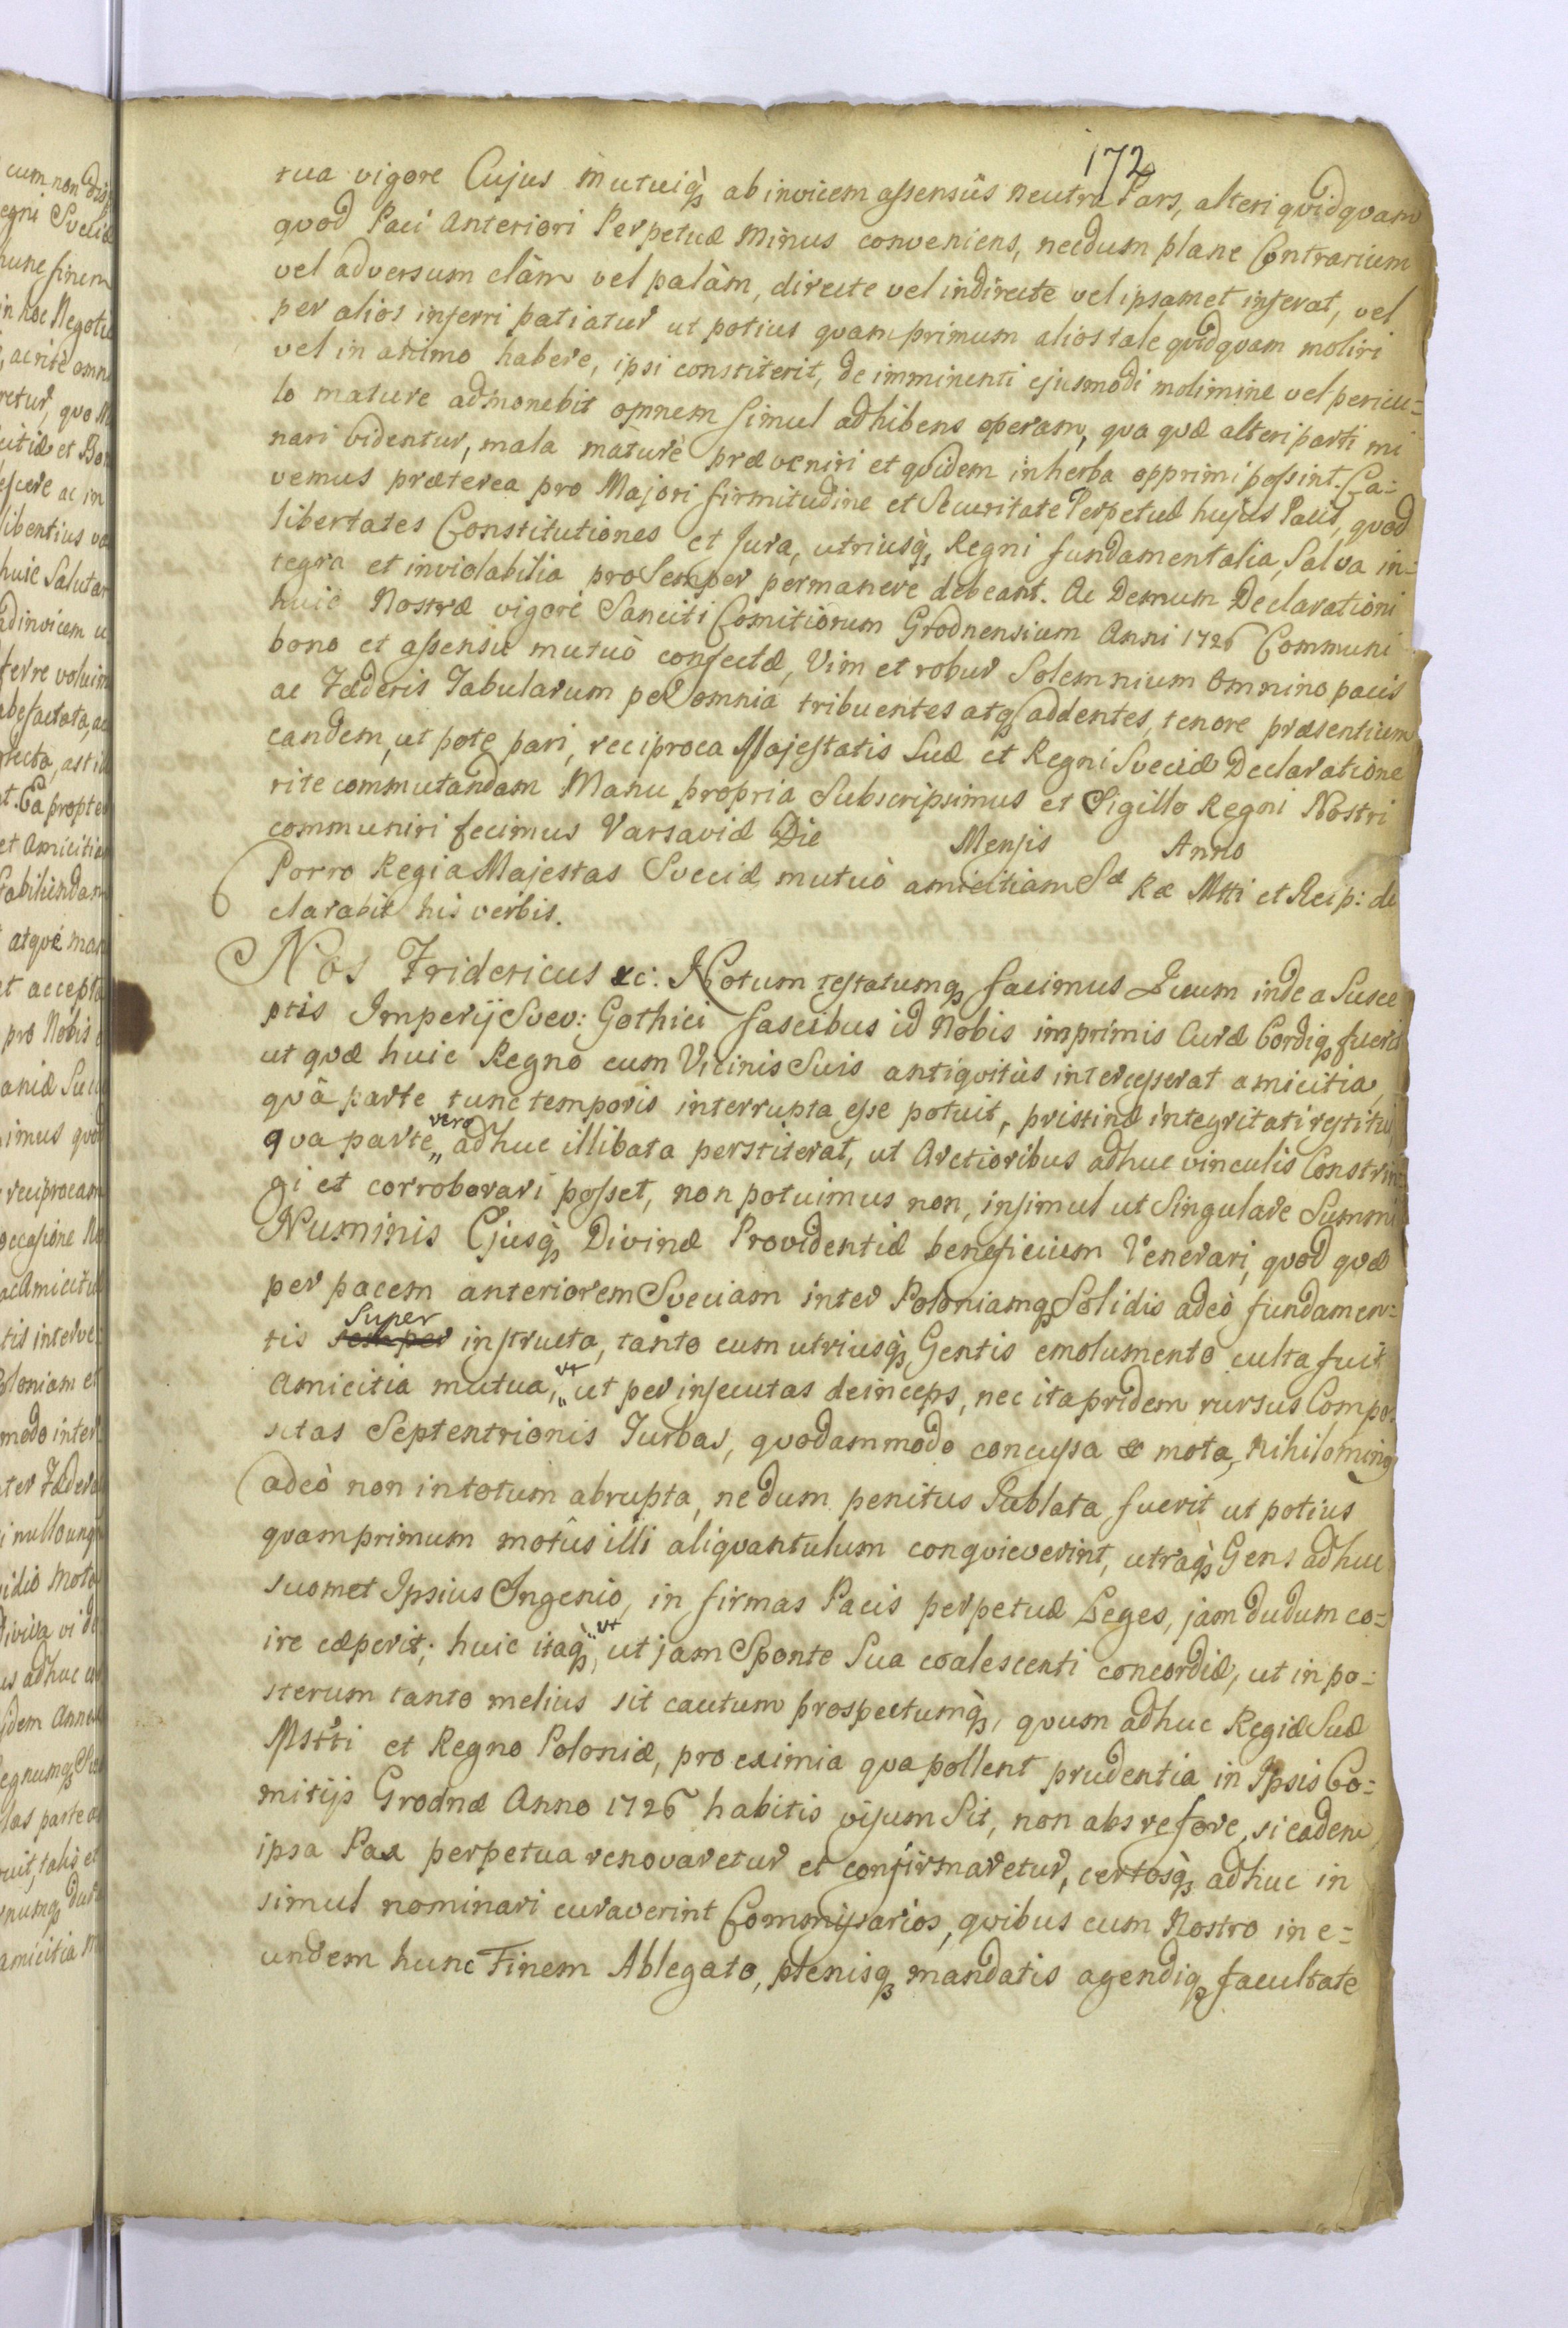 172
tua vigore Cujus mutuiq́ȝ ab invicem assensûs neutra Pars, alteri quidquam
quod Paci Anteriori Perpetuæ minus conveniens, necdum plane Contrarium
vel adversum clàm vel palàm, directe vel indirecte vel ipsamet inferat, vel
per alios inferri patiatur ut potius quamprimum alios tale quidquam moliri
vel in animo habere, ipsi constiterit, de imminenti ejusmodi molimine vel pericu=
lo mature admonebit omnem simul adhibens operam, qua quæ alteri parti mi
nari videntur, mala màturè præveniri et quidem in herba opprimi possint. Ca=
vemus præterea pro Majori firmitudine et Securitate Perpetuæ hujus Pacis, quod
libertates Constitutiones et Jura, utriusq́ȝ Regni fundamentalia, Salva in=
tegra et inviolabilia pro Semper permanere debeant. Ac Demum Declarationi
huic Nostræ vigore Sanciti Comitiorum Grodnensium Anni 1726 Communi
bono et assensu mutuò confectæ, Vim et robur Solemnium omnino pacis
ac Fæderis Tabularum per omnia tribuentes atqȝ addentes, tenore præsentium
eandem, ut pote pari, reciproca Majestatis Suæ et Regni Sveciæ Declaratione
rite commutandam Manu propria Subscripsimus et Sigillo Regni Nostri
communiri fecimus Varsaviæ Die Mensis Anno
Porro Regia Majestas Sveciæ mutuò amicitiam Sæ Ræ Mtti et Reip: de
clarabit his verbis.
Nos Fridericus &c: Notum testatumqȝ facimus Quum inde a Susce
ptis Imperij Sveo: Gothici fascibus id Nobis imprimis Curæ Cordiqȝ fuerit
ut quæ huic Regno cum Vicinis Suis antiquitùs intercesserat amicitia,
quâ parte tunc temporis interrupta esse potuit, pristinæ integritati restitui
qua parte vero adhuc illibata perstiterat, ut Arctioribus adhuc vinculis Constrin=
gi et corroborari posset, non potuimus non, insimul ut Singulare Summi
Numinis Ejusq́ȝ Divinæ Providentiæ beneficium Venerari, quod quæ
per pacem anteriorem Sveciam inter Poloniamqȝ Solidis adeò fundamen=
tis semper Super instructa, tanto cum utriusq́ȝ Gentis emolumento culta fuit
Amicitia mutua, vt ut per insecutas deinceps, nec ita pridem rursus Compo=
sitas Septentrionis Turbas, quodammodo concussa & mota, nihilominus
adeò non in totum abrupta, nedum penitus Sublata, fuerit ut potius
quamprimum motûs illi aliquantulum conquieverint, utraq́ȝ Gens adhuc
suomet Ipsius Ingenio, in firmas Pacis perpetuæ Leges, jam dudum co=
ire cæperit; huic itaq́ȝ, vt ut jam Sponte Sua coalescenti concordiæ, ut in po=
sterum tanto melius sit cautum prospectumq́ȝ, quum adhuc Regiæ Suæ
Mstti et Regno Poloniæ, pro eximia qua pollent prudentia in Ipsis Co=
mitijs Grodnæ Anno 1726 habitis visum Sit, non abs re fore, si eadem
ipsa Pax perpetua renovaretur et confirmaretur, certosq́ȝ adhuc in
simul nominari curaverint Commissarios, quibus cum Nostro in e=
undem hunc Finem Ablegato, plenisqȝ mandatis agendiqȝ facultate